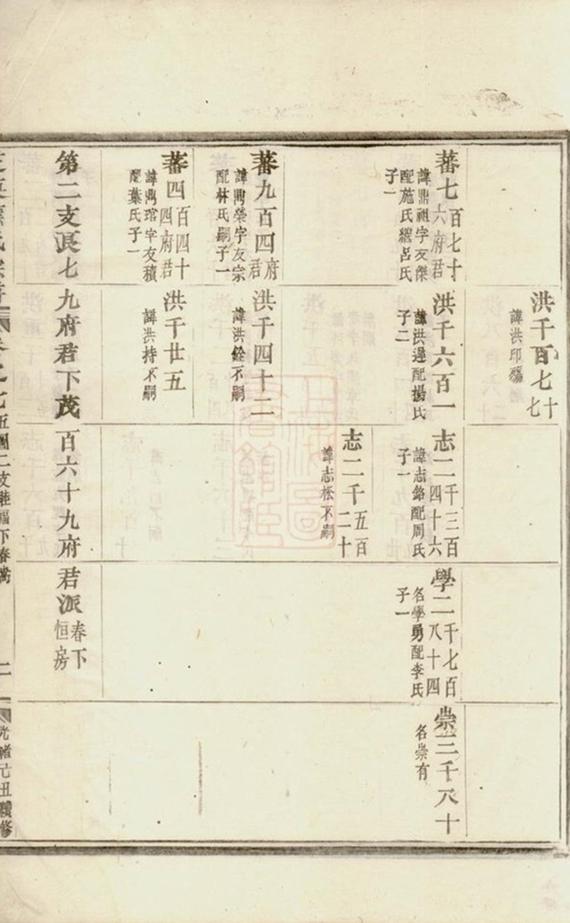 洪千百七十七
諱洪印殤
蕃七百七十六府君
諱鼎祖字友傑
配施氏繼呂氏
子一
洪千六百一
諱洪邊配楊氏
子二
志二千三百四十六
諱志銘配周氏
子一
學二千七百八十四
名學勇配李氏
子一
崇三千八十
名崇有
志二千五百二十
諱志松不嗣
蕃九百四府君
諱鼎榮字友宗
配林氏嗣子一
洪千四十二
諱洪銓不嗣
蕃四百四十四府君
諱鼎琯字友積
配葉氏子一
洪千廿五
諱洪持不嗣
第二支辰七九府君下茂百六十九府君派春下恒房
五團二支
下春
二
光緒
丑續修